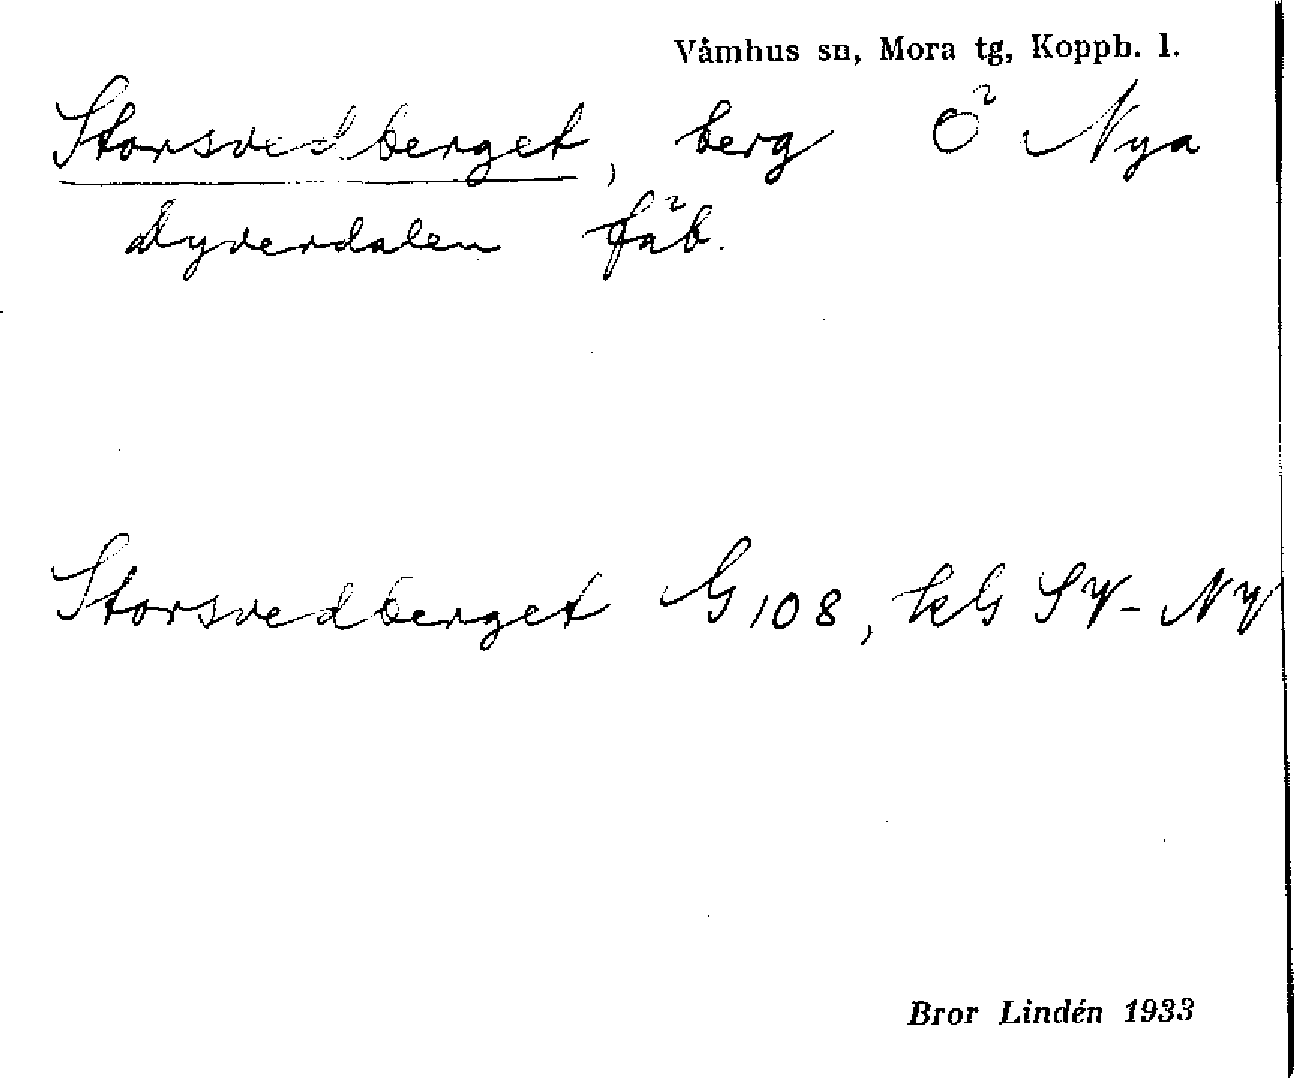 Våmhus sn, Mora tg, Koppb. l.
Storsvedberget, berg Ö Nya
dyverdalen fäb.
Storsvedberget G 108, kG SV-NV
Bror Lindén 1933